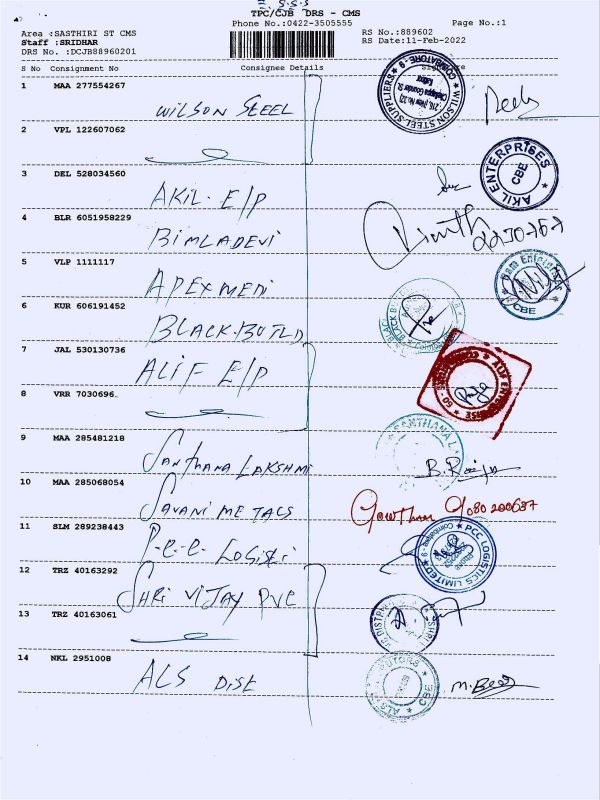 TPC/CJB DRS - CMS
Phone No.:0422-3505555
Page No.:1
Area :SASTHIRI ST CMS
RS No.:889602
Staff :SRIDHAR
RS Date:11-Feb-2022
DRS No. :DCJB88960201
S No Consignment No Consignee Details
1 MAA 277554267
WILSON STEEL
WILSON STEEL SUPPLIERS
COIMBATORE - 9
2 VPL 122607062
AKIL ENTERPRISES
CBE
3 DEL 528034560
AKIL. E/P
4 BLR 6051958229
BIMLADEVI
5 VLP 1111117
APEX MEDI
CBE
6 KUR 606191452
BLACK.BUTLD
7 JAL 530130736
ALIF E/P
8 VRR 7030696
9 MAA 285481218
SANTHANA LAKSHMI
SANTHANA
10 MAA 285068054
SAVANI METALS
Gowtham 9080200687
11 SLM 289238443
P.C.C. LOGISTI
PCC LOGISTICS LIMITED
12 TRZ 40163292
SHRI VIJAY PVC
13 TRZ 40163061
14 NKL 2951008
ALS DIST
CBE